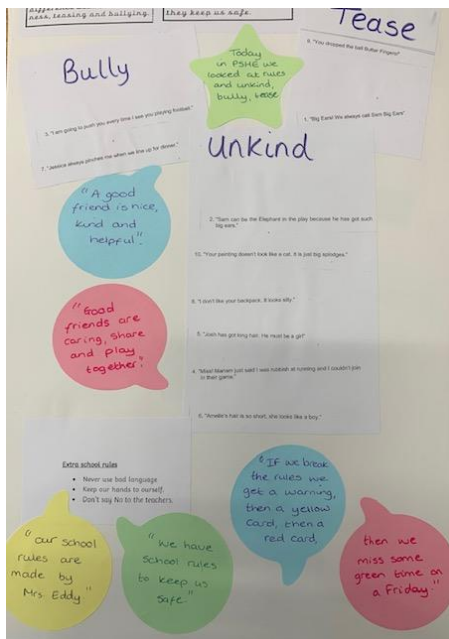 ness, teasing and bullying.
they keep us safe.
Tease
8. "You dropped the ball Butter Fingers!"
1. "Big Ears! We always call Sam Big Ears"
Today
in PSHE we
looked at rules
and unkind,
bully, tease
Bully
3. "I am going to push you every time I see you playing football."
7. "Jessica always pinches me when we line up for dinner."
Unkind
2. "Sam can be the Elephant in the play because he has got such
big ears."
10. "Your painting doesn't look like a cat. It is just big splodges."
"I don't like your backpack. It looks silly."
"Josh has got long hair. He must be a girl"
4. "Miss! Mariam just said I was rubbish at running and I couldn't join
in their game."
"Amelie's hair is so short, she looks like a boy."
"A good
friend is nice,
kind and
helpful".
"Good
friends are
caring, share
and play
together."
Extra school rules
• Never use bad language
• Keep our hands to ourself.
• Don't say No to the teachers.
"our school
rules are
made by
Mrs. Eddy."
"We have
school rules
to keep us
safe."
"If we break
the rules we
get a warning,
then a yellow
card, then a
red card,
then we
miss some
green time on
a Friday."